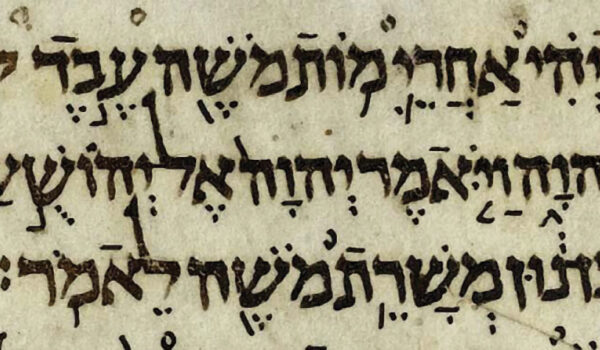 יְהִ֗י אַחֲרֵ֛י מ֥וֹת מֹשֶׁ֖ה עֶ֣בֶד
הוָ֑ה וַיֹּ֤אמֶר יְהוָה֙ אֶל יְהוֹשֻׁ֣עַ
נ֔וּן מְשָׁרֵ֥ת מֹשֶׁ֖ה לֵאמֹֽר׃